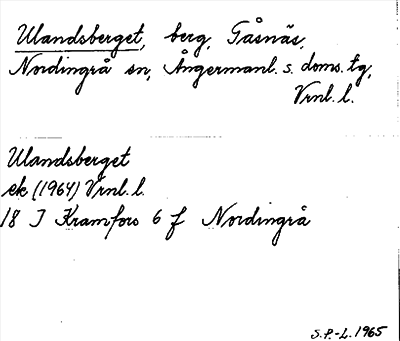 Ulandsberget, berg, Gåsnäs,
Nordingrå sn, Ångermanl. s. doms. tg,
Vrnl. l.
Ulandsberget
ek (1964) Vrnl. l.
18 I Kramfors 6 f Nordingrå
S.P.-L. 1965